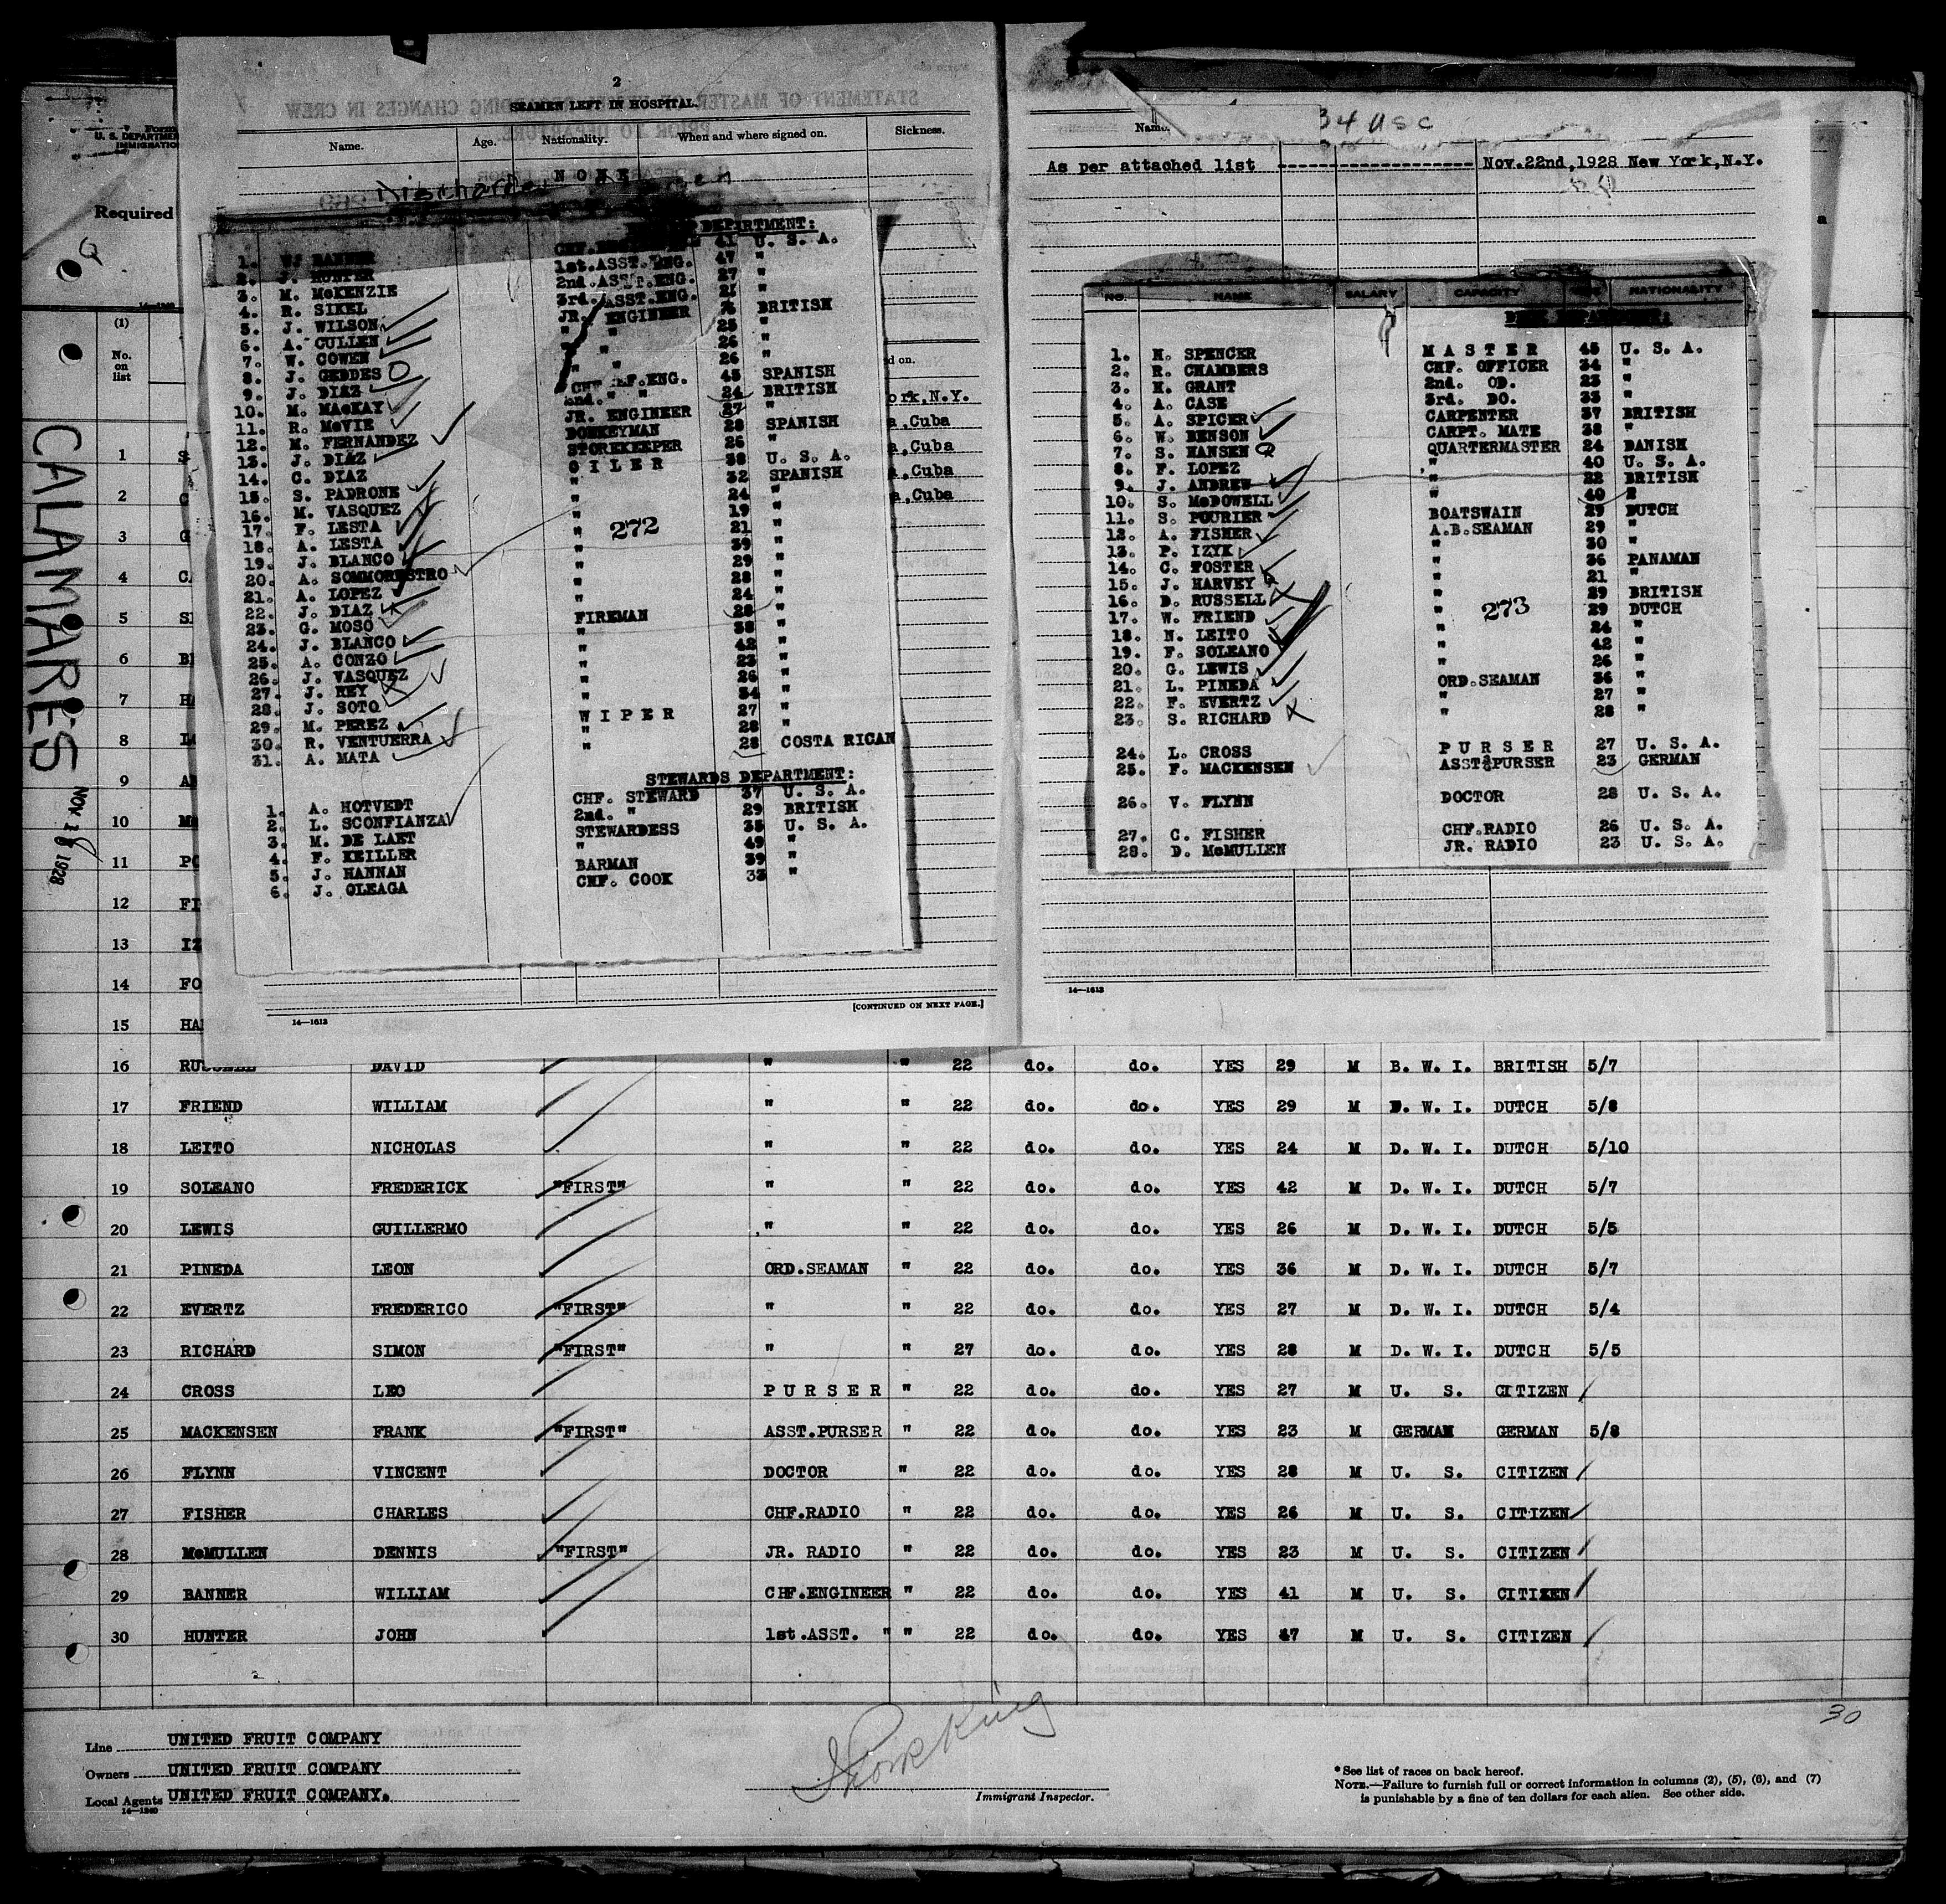 2
SEAMEN LEFT IN HOSPITAL.
Name. Age. Nationality. When and where signed on. Sickness.
NONE
DEPARTMENT:
1. W. BANNER CHF. 41 U. S. A.
2. J. HUNTER 1st.ASST.ENG. 47 "
3. M. McKENZIE 2nd.ASST.ENG. 27 "
4. R. SIKEL 3rd.ASST.ENG. 21 "
5. J. WILSON JR. ENGINEER BRITISH
6. A. CULLEN " " 25 "
7. W. COWEN " 26 "
8. J. GEDDES " " 26 "
9. J. DIAZ EF.ENG. 45 SPANISH
10. M. MacKAY 2nd. " " 24 BRITISH
11. R. McVIE JR. ENGINEER 27 "
12. M. FERNANDEZ DONKEYMAN 28 SPANISH
13. J. DIAZ STOREKEEPER 26 "
14. C. DIAZ OILER 38 U. S. A.
15. S. PADRONE " 32 SPANISH
16. M. VASQUEZ " 24 "
17. F. LESTA " 19 "
18. A. LESTA " 272 21 "
19. J. BLANCO " 39 "
20. A. SOMMORESTRO " 29 "
21. A. LOPEZ " 28 "
22. J. DIAZ " 24 "
23. G. MOSO FIREMAN 28 "
24. J. BLANCO " 38 "
25. A. CONZO " 42 "
26. J. VASQUEZ " 23 "
27. J. REY " 26 "
28. J. SOTO " 34 "
29. M. PEREZ WIPER 27 "
30. R. VENTUERRA " 28 "
31. A. MATA " 28 COSTA RICAN
STEWARDS DEPARTMENT:
1. A. HOTVEDT CHF. STEWARD 37 U. S. A.
2. L. SCONFIANZA 2nd. " 29 BRITISH
3. M. DE LAET STEWARDESS 35 U. S. A.
4. F. KEILLER " 49 "
5. J. HANNAN BARMAN 39 "
6. J. OLEAGA CHF. COOK 33 "
[CONTINUED ON NEXT PAGE.]
14—1613
34 USC
Name.
As per attached list Nov.22nd,1928 New York,N.Y.
NO. NAME SALARY CAPACITY NATIONALITY
DECK DEPARTMENT:
1. M. SPENCER MASTER 45 U. S. A.
2. R. CHAMBERS CHF. OFFICER 34 "
3. H. GRANT 2nd. OD. 23 "
4. A. CASE 3rd. DO. 33 "
5. A. SPICER CARPENTER 37 BRITISH
6. W. BENSON CARPT. MATE 38 "
7. S. HANSEN QUARTERMASTER 24 DANISH
8. F. LOPEZ " 40 U. S. A.
9. J. ANDREW " 22 BRITISH
10. S. McDOWELL " 40 "
11. S. POURIER BOATSWAIN 29 DUTCH
12. A. FISHER A.B.SEAMAN 29 "
13. P. IZYK " 30 "
14. C. FOSTER " 36 PANAMAN
15. J. HARVEY " 21 "
16. D. RUSSELL " 29 BRITISH
17. W. FRIEND " 273 29 DUTCH
18. N. LEITO " 24 "
19. F. SOLEANO " 42 "
20. G. LEWIS " 26 "
21. L. PINEDA ORD.SEAMAN 36 "
22. F. EVERTZ " 27 "
23. S. RICHARD " 28 "
24. L. CROSS PURSER 27 U. S. A.
25. F. MACKENSEN ASST.PURSER 23 GERMAN
26. V. FLYNN DOCTOR 28 U. S. A.
27. C. FISHER CHF.RADIO 26 U. S. A.
28. D. McMULLEN JR. RADIO 23 U. S. A.
14—1613
Form
U. S. DEPARTMEN
IMMIGRATIO
Required
(1)
No. on list
d on.
ork,N.Y.
a,Cuba
a,Cuba
a,Cuba
a,Cuba
CALAMARES
NOV 1928
1 S
2 C
3 G
4 CA
5 SP
6 BE
7 HA
8 LO
9 AN
10 Mc
11 PO
12 FI
13 IZ
14 FO
15 HA
16 RUSSELL DAVID " " 22 do. do. YES 29 M B. W. I. BRITISH 5/7
17 FRIEND WILLIAM " " 22 do. do. YES 29 M D. W. I. DUTCH 5/8
18 LEITO NICHOLAS " " 22 do. do. YES 24 M D. W. I. DUTCH 5/10
19 SOLEANO FREDERICK "FIRST" " " 22 do. do. YES 42 M D. W. I. DUTCH 5/7
20 LEWIS GUILLERMO " " 22 do. do. YES 26 M D. W. I. DUTCH 5/5
21 PINEDA LEON ORD.SEAMAN " 22 do. do. YES 36 M D. W. I. DUTCH 5/7
22 EVERTZ FREDERICO "FIRST" " " 22 do. do. YES 27 M D. W. I. DUTCH 5/4
23 RICHARD SIMON "FIRST" " " 27 do. do. YES 28 M D. W. I. DUTCH 5/5
24 CROSS LEO PURSER " 22 do. do. YES 27 M U. S. CITIZEN
25 MACKENSEN FRANK "FIRST" ASST.PURSER " 22 do. do. YES 23 M GERMAN GERMAN 5/8
26 FLYNN VINCENT DOCTOR " 22 do. do. YES 28 M U. S. CITIZEN
27 FISHER CHARLES CHF.RADIO " 22 do. do. YES 26 M U. S. CITIZEN
28 McMULLEN DENNIS "FIRST" JR. RADIO " 22 do. do. YES 23 M U. S. CITIZEN
29 BANNER WILLIAM CHF.ENGINEER " 22 do. do. YES 41 M U. S. CITIZEN
30 HUNTER JOHN 1st.ASST. " " 22 do. do. YES 47 M U. S. CITIZEN
30
Line UNITED FRUIT COMPANY
Owners UNITED FRUIT COMPANY
Local Agents UNITED FRUIT COMPANY.
14—1240
Immigrant Inspector.
* See list of races on back hereof.
NOTE.—Failure to furnish full or correct information in columns (2), (5), (6), and (7)
is punishable by a fine of ten dollars for each alien. See other side.